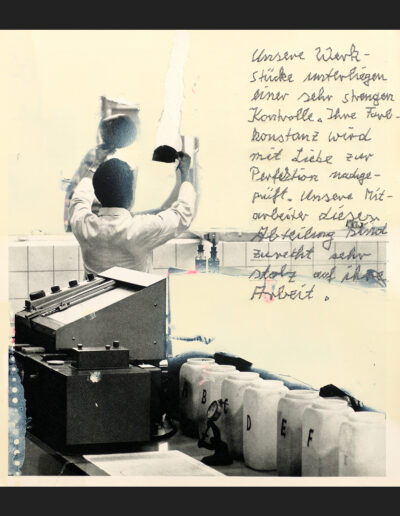 Unsere Werk-
stücke unterliegen
einer sehr strengen
Kontrolle. Ihre Farb-
konstanz wird
mit Liebe zur
Perfektion nachge-
prüft. Unsere Mit-
arbeiter dieser
Abteilung sind
zurecht sehr
stolz auf ihre
Arbeit.
B D E F